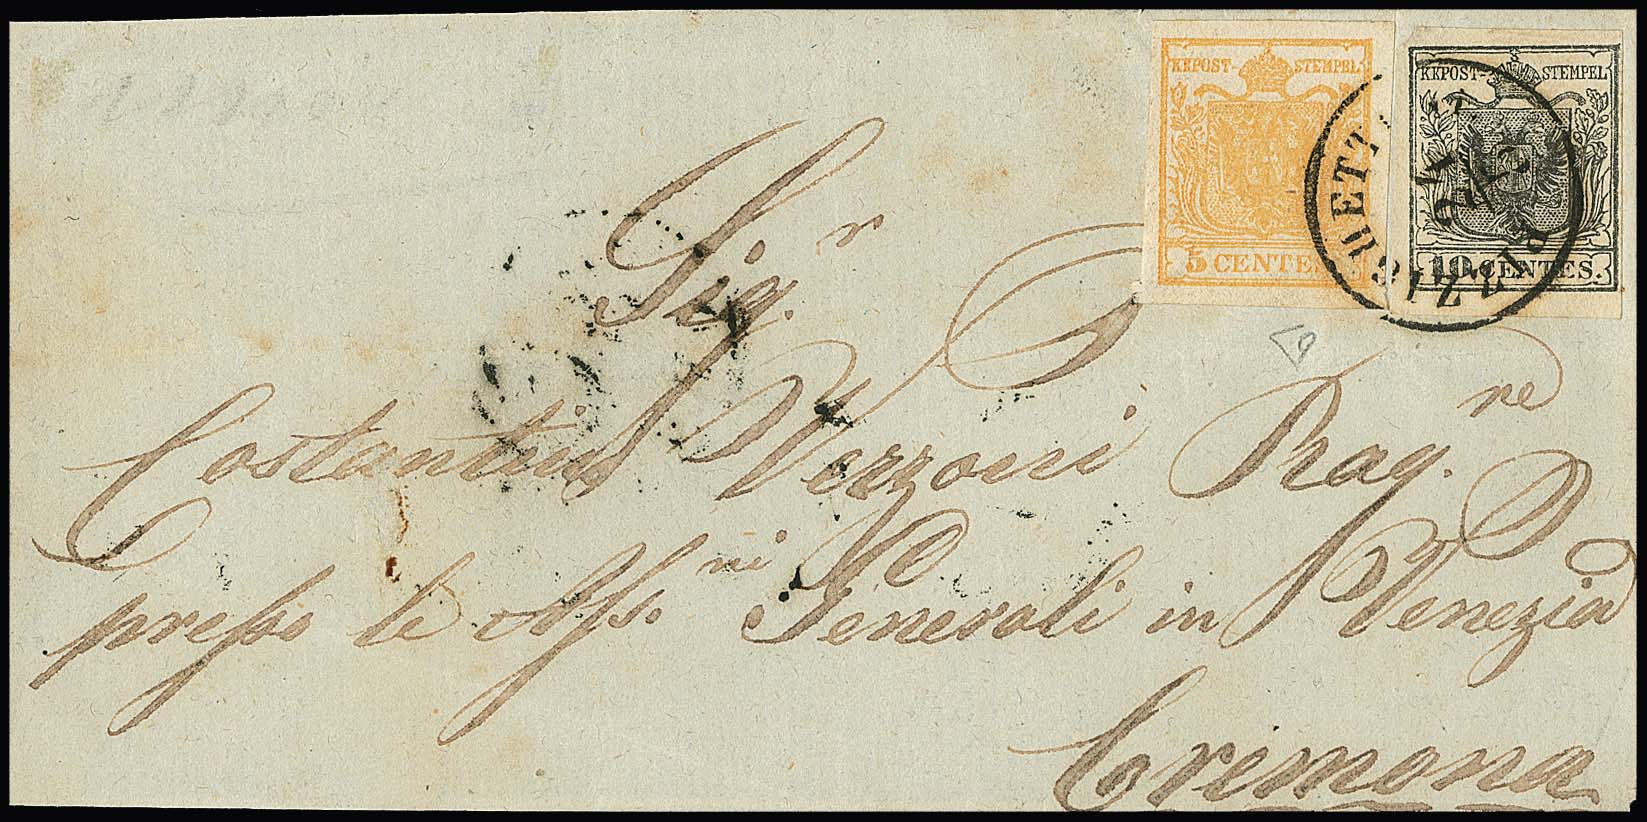 KKPOST-STEMPEL KKPOST-STEMPEL
5 CENTES. 10 CENTES.
PIZZIGHETTONE
Sig.r
Costantino Vezzosi Rag.re
presso le Ass.ni Generali in Venezia
Cremona